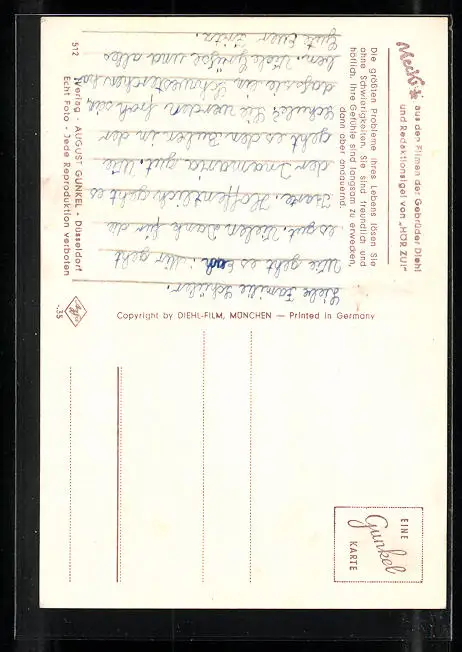 Mecki
aus den Filmen der Gebrüder Diehl
und Redaktionsigel von „HÖR ZU!“
Die größten Probleme Ihres Lebens lösen Sie
ohne Schwierigkeiten. Sie sind freundlich und
höflich. Ihre Gefühle sind langsam zu erwecken,
dann aber andauernd.
Liebe Familie Schüler.
Wie geht es Euch. Mir geht
es gut. Vielen Dank für die
Karte. Hoffentlich geht es
der gut. Wie
geht es den in der
Schule? Sie werden froh sein
daß sie ein Schwesterchen ha-
ben. Viele Grüße und alles
Gute Euer
512
Verlag · AUGUST GUNKEL · Düsseldorf
Echt Foto - Jede Reproduktion verboten
Agfa
4.35
Copyright by DIEHL-FILM, MÜNCHEN — Printed in Germany
EINE
Gunkel
KARTE